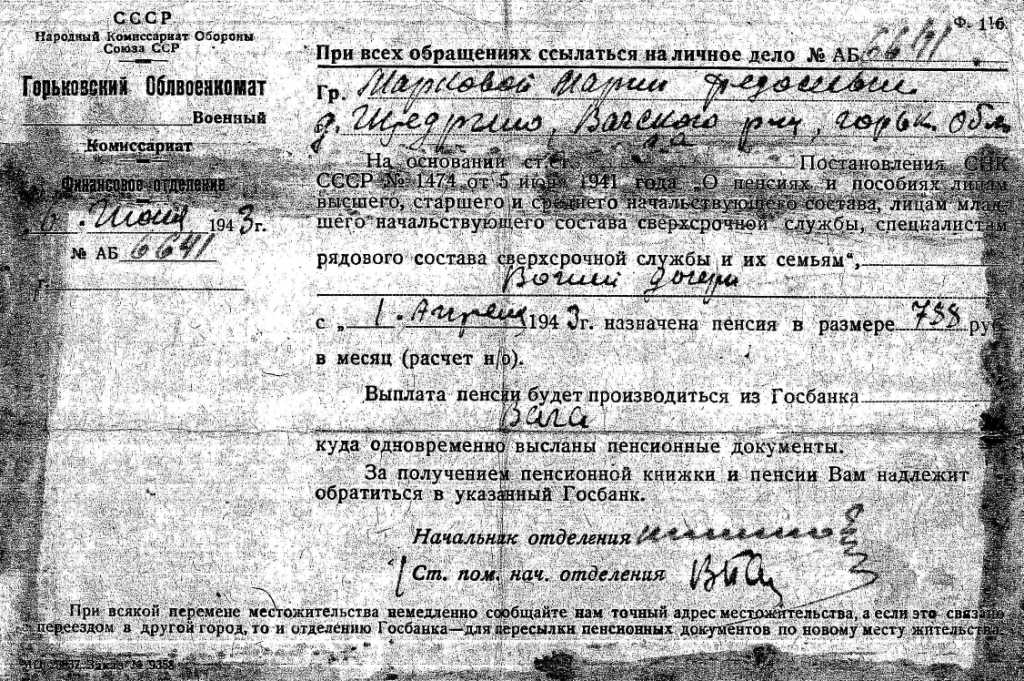 СССР
Народный Комиссариат Обороны
Союза ССР
Горьковский Облвоенкомат
Военный
Комиссариат
Финансовое отделение
6. Июня 1943г.
№ АБ 6641
г.
Ф. 116.
При всех обращениях ссылаться на личное дело № АБ 6641
Гр. Марковой Марии
д. Щедрино, Вачского р-на, горьк. Обл
На основании ст.ст. Постановления СНК
СССР № 1474 от 5 июня 1941 года „О пенсиях и пособиях лицам
высшего, старшего и среднего начальствующего состава, лицам млад-
шего начальствующего состава сверхсрочной службы, специалистам
рядового состава сверхсрочной службы и их семьям“,
Вашей дочери
с „1. Апреля 1943г. назначена пенсия в размере 738 руб.
в месяц (расчет н/о).
Выплата пенсии будет производиться из Госбанка
Вача
куда одновременно высланы пенсионные документы.
За получением пенсионной книжки и пенсии Вам надлежит
обратиться в указанный Госбанк.
Начальник отделения
Ст. пом. нач. отделения
При всякой перемене местожительства немедленно сообщайте нам точный адрес местожительства, а если это связано
переездом в другой город, то и отделению Госбанка—для пересылки пенсионных документов по новому месту жительства.
Заказ № 9358